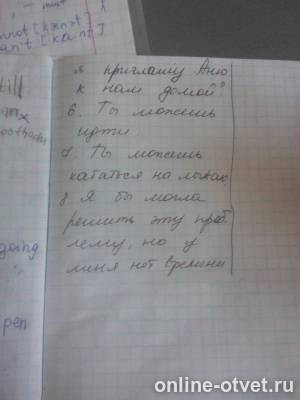 nnot [kænnot]
an't [kant]
till
am
oothache
going
pen
я приглашу Аню
к нам домой?
6. Ты можешь
идти
7. Ты можешь
кататься на лыжах.
8. Я бы могла
решить эту проб
лему, но у
меня нет времени
online-otvet.ru